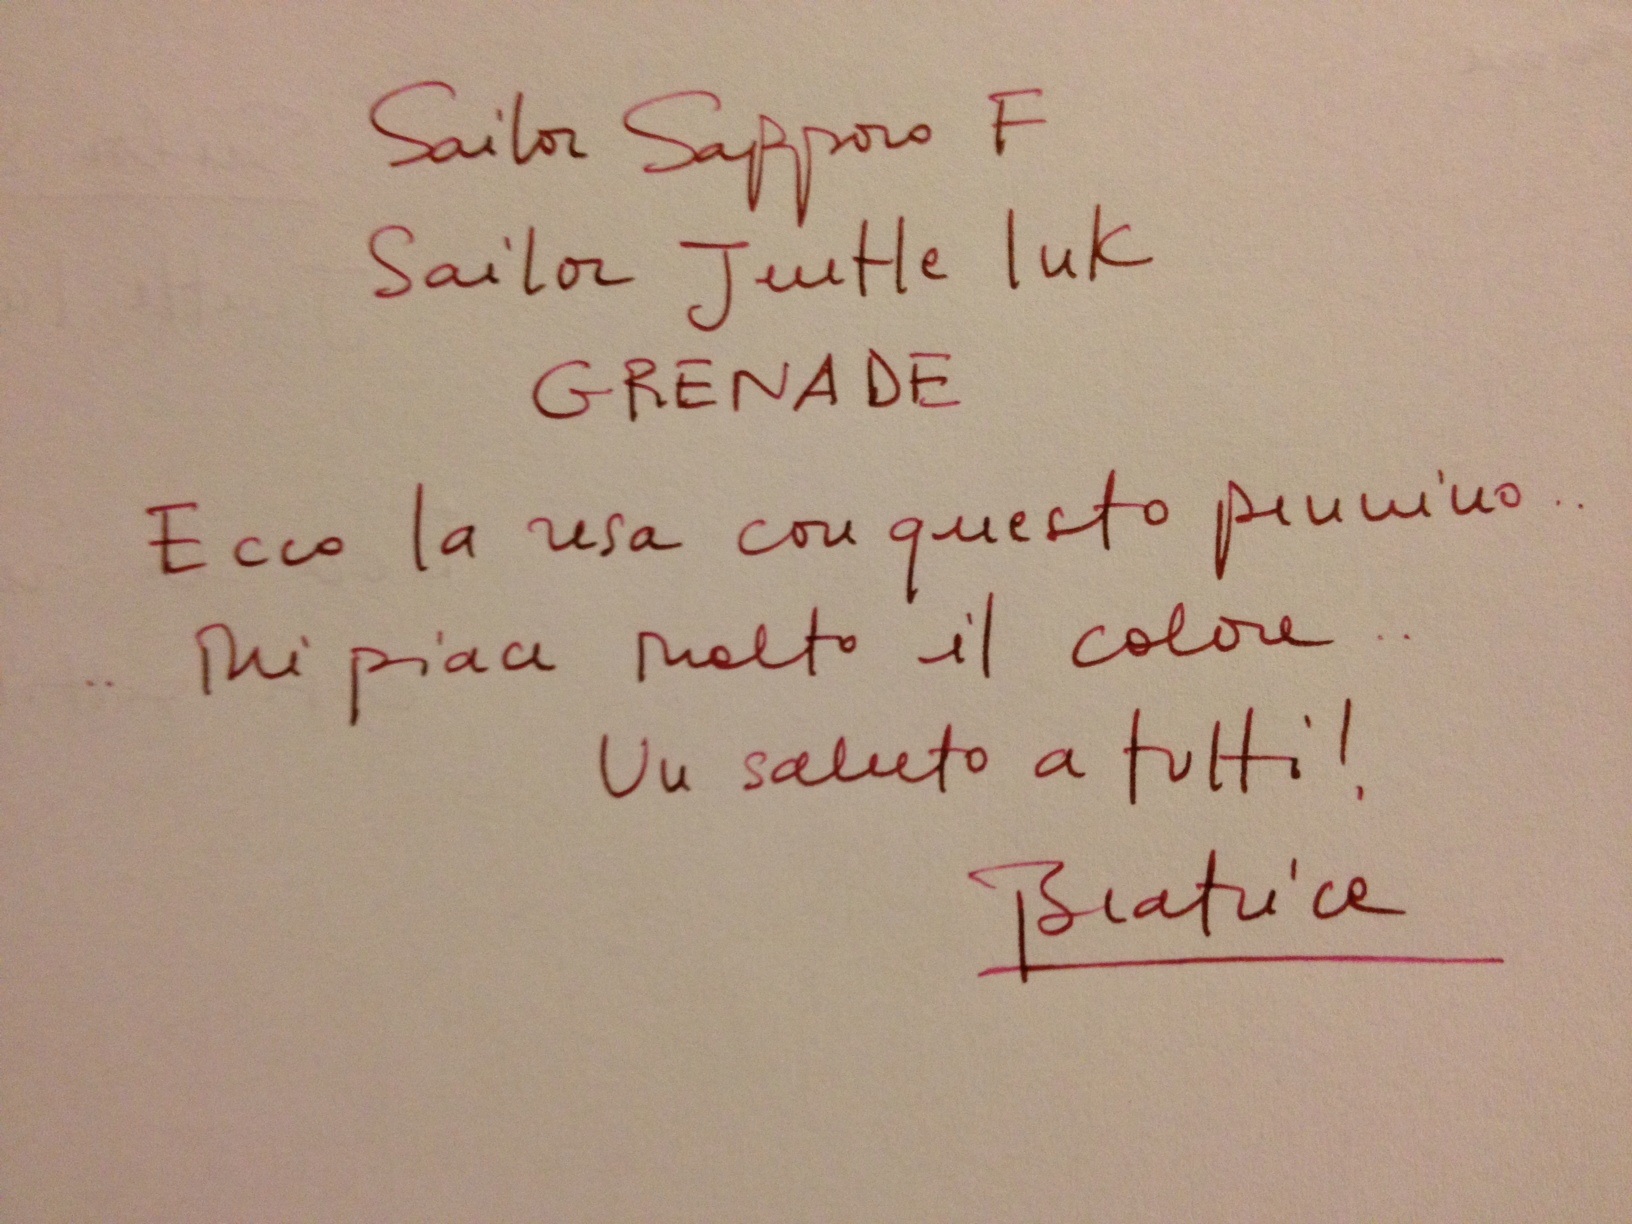 Sailor Sapporo F
Sailor Jentle Ink
GRENADE
Ecco la resa con questo pennino..
.. Mi piace molto il colore ..
Un saluto a tutti!
Beatrice